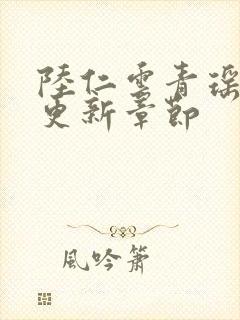 陸仁雲青瑤
更新章節
風吟簫